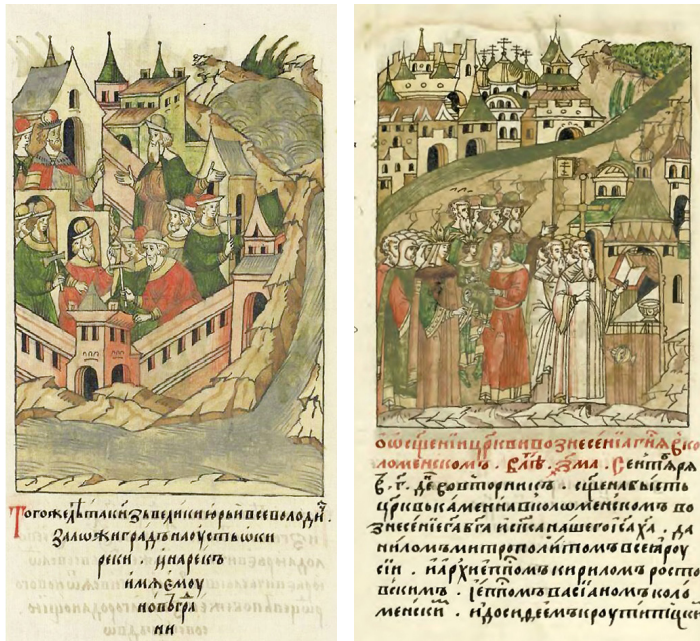 Тогожелѣтакн҃зьвеликиіюрьивсеволоди҆ч
заложиградънаоустьѡки
реки инарекъ
имяемоу
новъгра
ни
оѡсщ҃енїицр҃квивознесенїягн҃яв҃ко
ломенскомъ . влѣ҃ . ҂зма . сентѧбря
г҃ . дн҃ь вовторникъ . сщ҃енабысть
цр҃квькаменнавколоменскомъво
знесенїега҃ба҃гаисп҃санашегоіс҃аха҃ . да
ниломъмитрополитомъвсеяроу
сїи . иархїепп҃омъкириломъросто
вскимъ . їепп҃омъвасїаномъкол
менски . идосифеемъкроутитцки